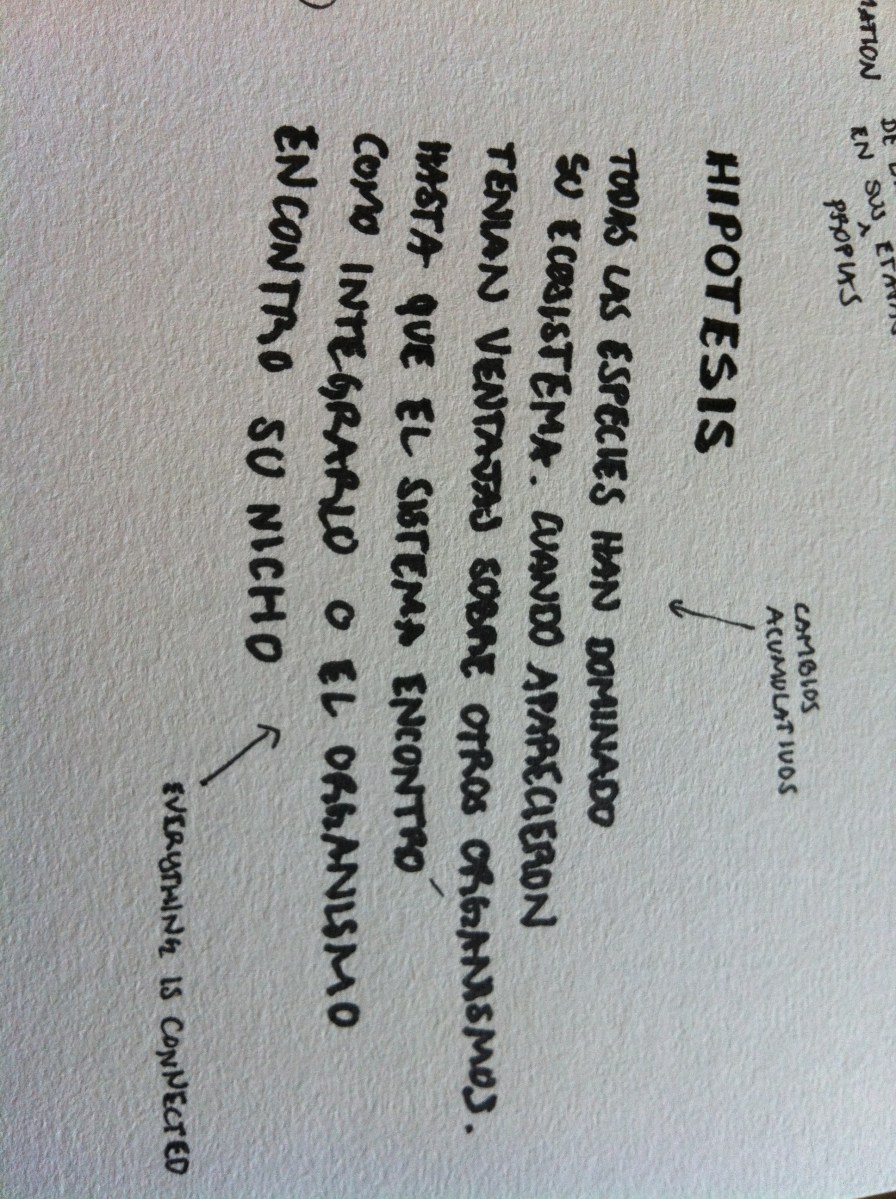 DE
EN SUS
PROPIAS
HIPOTESIS
CAMBIOS
ACUMULATIVOS
TODAS LAS ESPECIES HAN DOMINADO
SU ECOSISTEMA. CUANDO APARECIERON
TENIAN VENTAJAS SOBRE OTROS ORGANISMOS.
HASTA QUE EL SISTEMA ENCONTRÓ
COMO INTEGRARLO O EL ORGANISMO
ENCONTRO SU NICHO
EVERYTHING IS CONNECTED